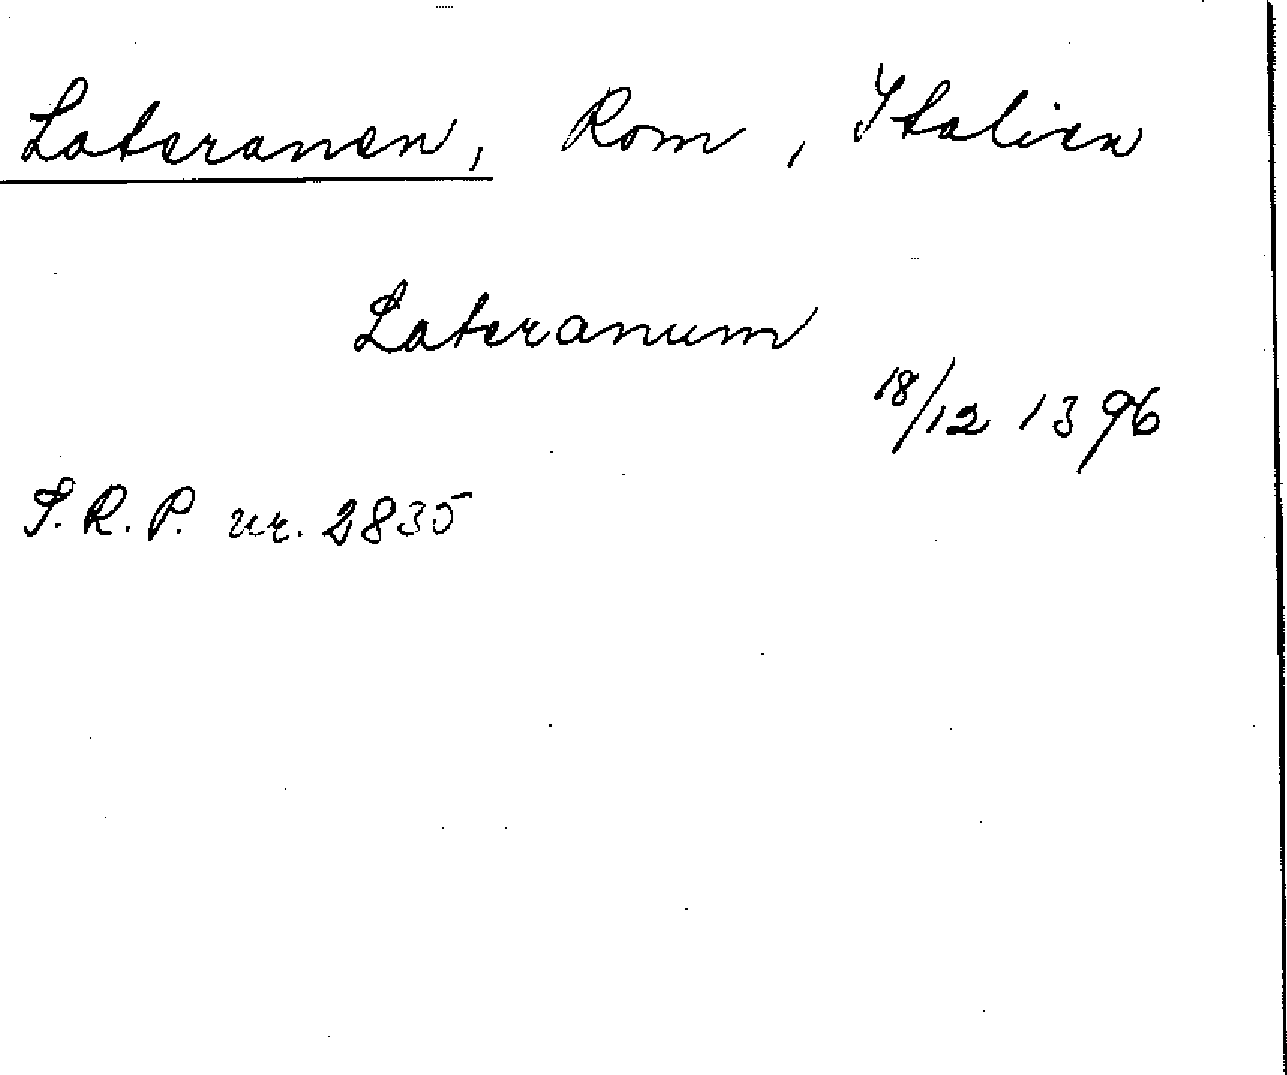 Lateranen, Rom, Italien
Lateranum
18/12 1396
S.R.P. nr. 2835